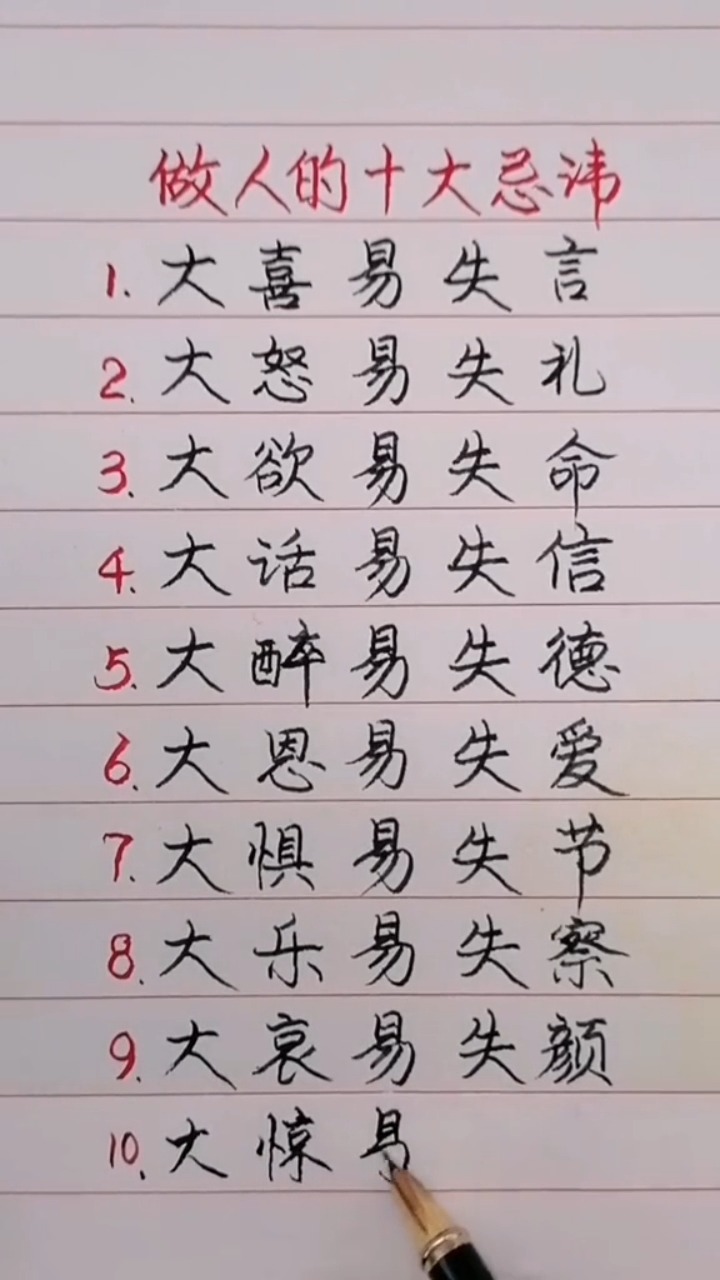 做人的十大忌讳
1. 大喜易失言
2. 大怒易失礼
3. 大欲易失命
4. 大话易失信
5. 大醉易失德
6. 大恩易失爱
7. 大惧易失节
8. 大乐易失察
9. 大哀易失颜
10. 大惊